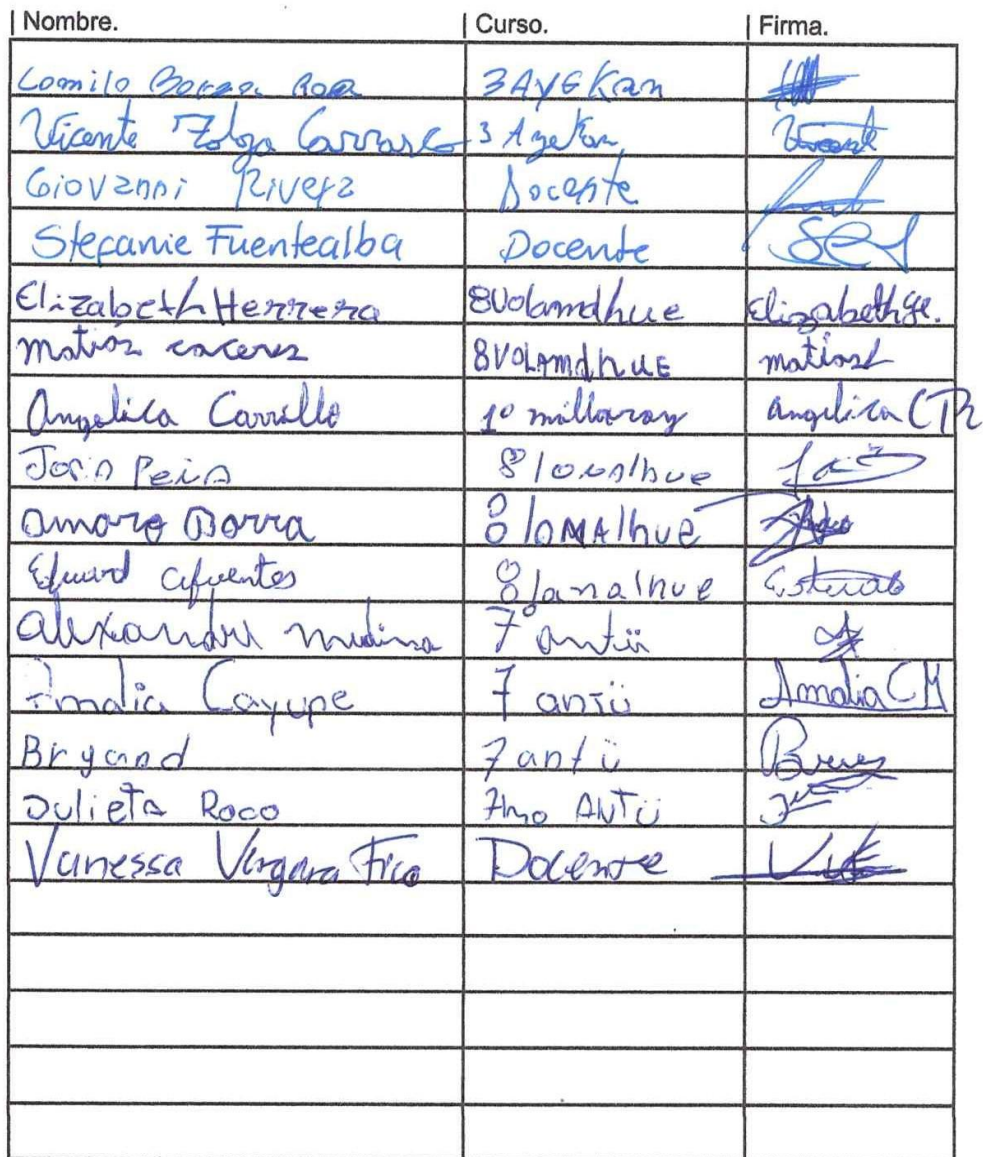 Nombre. Curso. Firma.
Comilo 3 AyEKan
Vicente Carrasco 3 Ayekan Vicente
Giovanni Rivera Docente
Stefanie Fuentealba Docente SCf
Elizabeth Herrera 8Volamdhue Elizabeth H.
matias caceres 8VOLAMdhUE matias
Angelica Carrillo 1° millaray angelica C
8
amaro Borra 8 loMAlhue
cifuentes 8 lanalhue
alexandra medina 7° antü
Amalia Cayupe 7 antü Amalia CM
Bryand 7 antü
Julieta Roco 7mo ANTÜ
Vanessa Vergara Docente